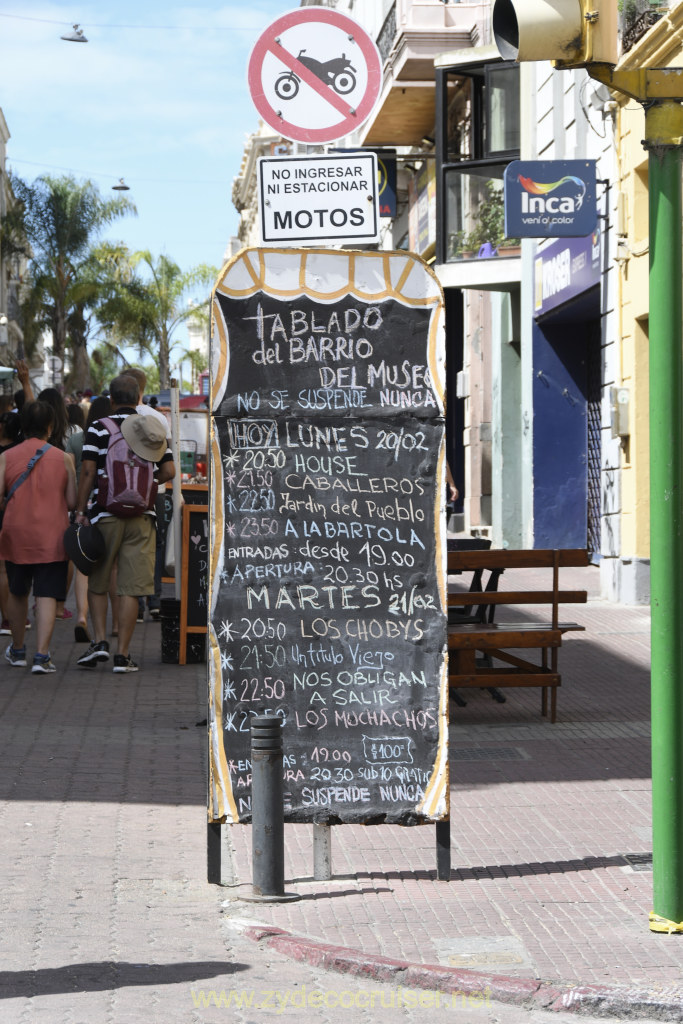 NO INGRESAR
NI ESTACIONAR
MOTOS
Inca
vení al color
KROSER
TABLADO
del BARRIO
DEL MUSEO
NO SE SUSPENDE NUNCA
HOY LUNES 20/02
* 20.50 HOUSE
* 21.50 CABALLEROS
* 22.50 Jardin del Pueblo
* 23.50 A LA BARTOLA
ENTRADAS: desde 19.00
* APERTURA: 20.30 hs
MARTES 21/02
* 20:50 LOS CHOBYS
* 21:50 Un título Viejo
* 22:50 NOS OBLIGAN
A SALIR
* LOS MUCHACHOS
19.00 $100
20.30 SUB 10 GRATIS
SUSPENDE NUNCA
www.zydecocruiser.net